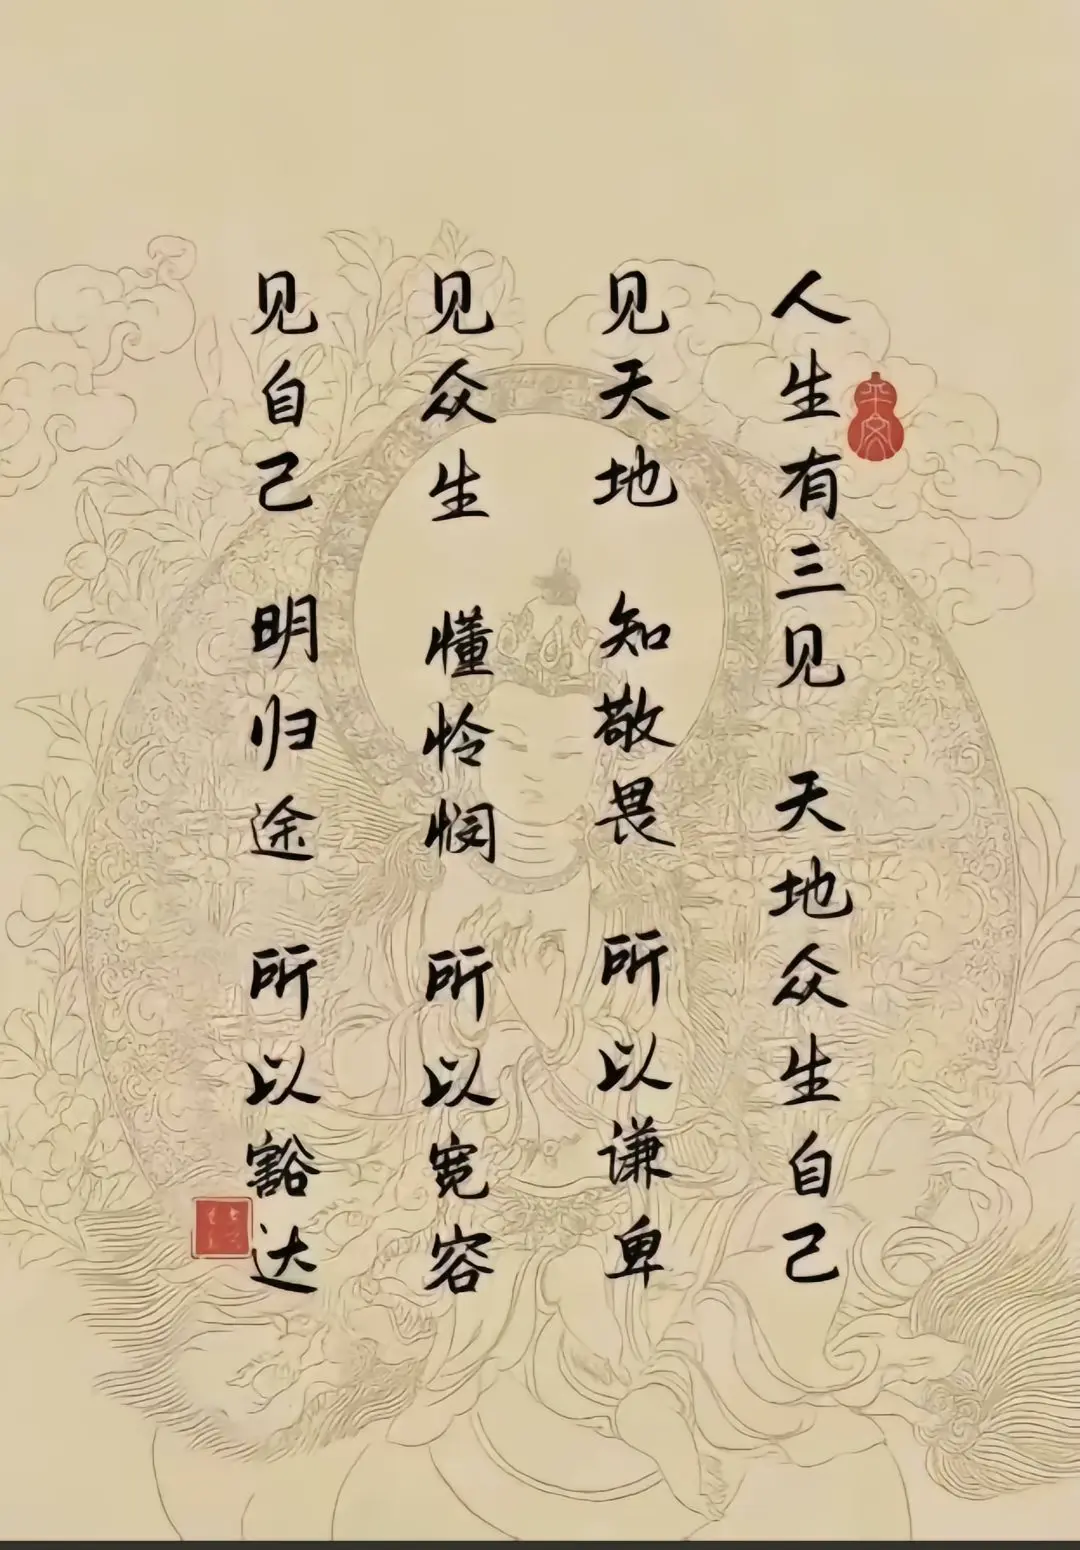 人生有三见 天地众生自己
平安
见天地 知敬畏 所以谦卑
见众生 懂怜悯 所以宽容
见自己 明归途 所以豁达